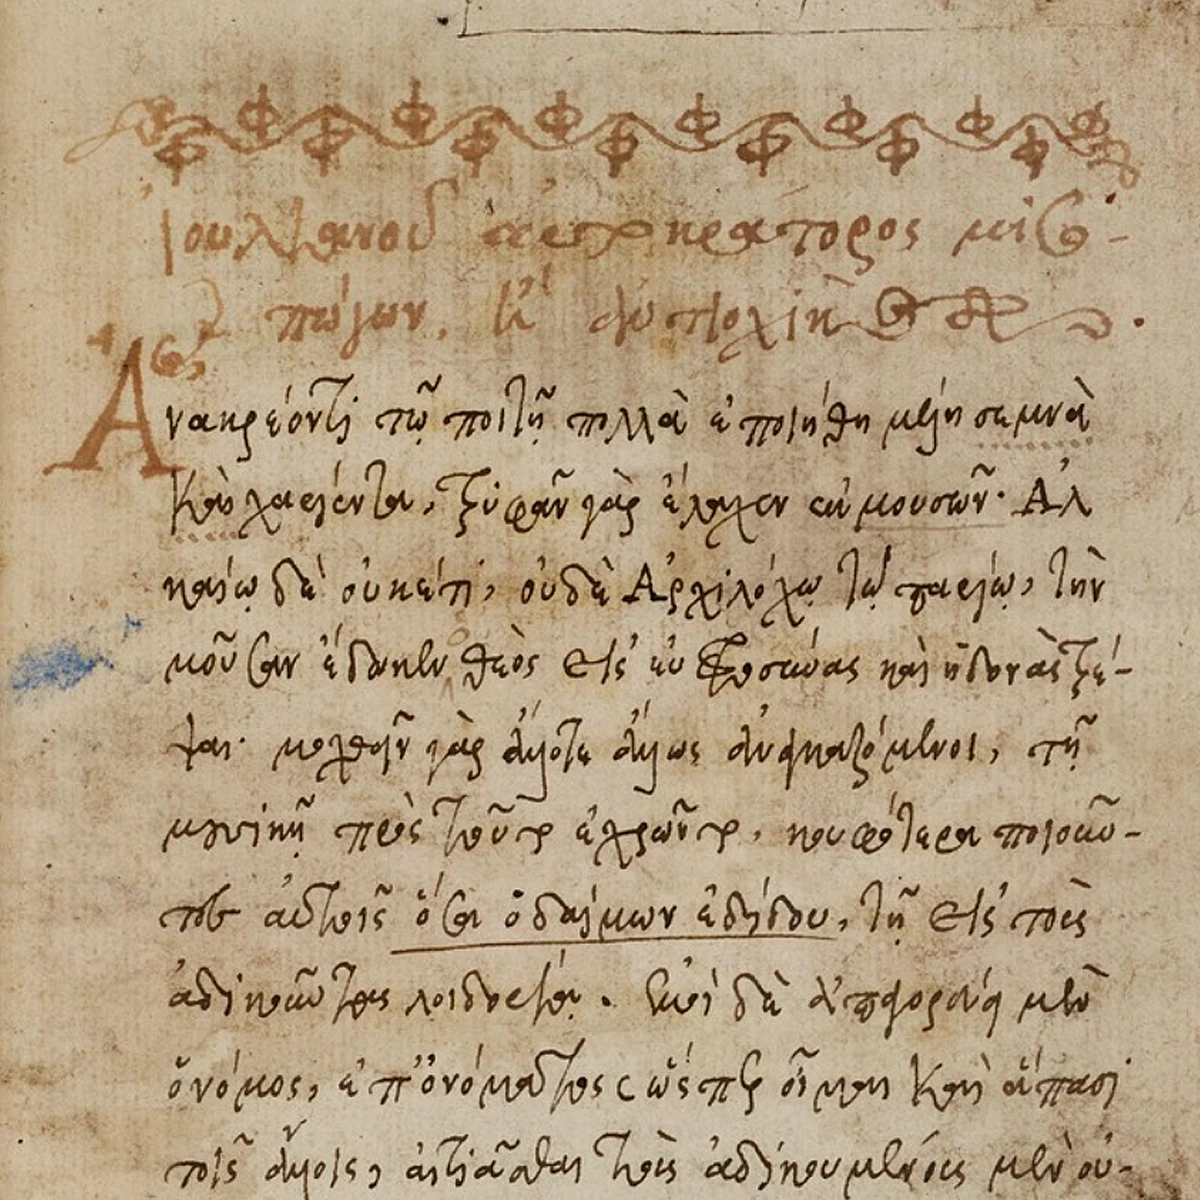 Ἰουλιανοῦ αὐτοκράτορος μισο-
πώγων, ἢ ἀντιοχικὸς.
Ἀνακρέοντι τῷ ποιητῇ πολλὰ ἐποιήθη μέλη σεμνὰ
καὶ χαρίεντα, τρυφᾶν γὰρ ἔλαχεν ἐκ μουσῶν· Ἀλ
καίῳ δὲ οὐκέτι, οὐδὲ Ἀρχιλόχῳ τῷ παρίῳ, τὴν
μοῦσαν ἔδωκεν ὁ θεὸς εἰς εὐφροσύνας καὶ ἡδονὰς τρέ-
ψαι· μοχθεῖν γὰρ ἄλλοτε ἄλλως ἀναγκαζόμενοι, τῇ
μουσικῇ πρὸς τοῦτο ἐχρῶντο, κουφότερα ποιοῦν-
τες αὐτοῖς ὅσα ὁ δαίμων ἐδίδου, τῇ εἰς τοὺς
ἀδικοῦντας λοιδορίᾳ. Ἐμοὶ δὲ ἀπαγορεύει μὲν
ὁ νόμος, ἐπ' ὀνόματος ὥσπερ οἶμαι καὶ ἅπασι
τοῖς ἄλλοις, αἰτιᾶσθαι τοὺς ἀδικουμένους μὲν οὐ-